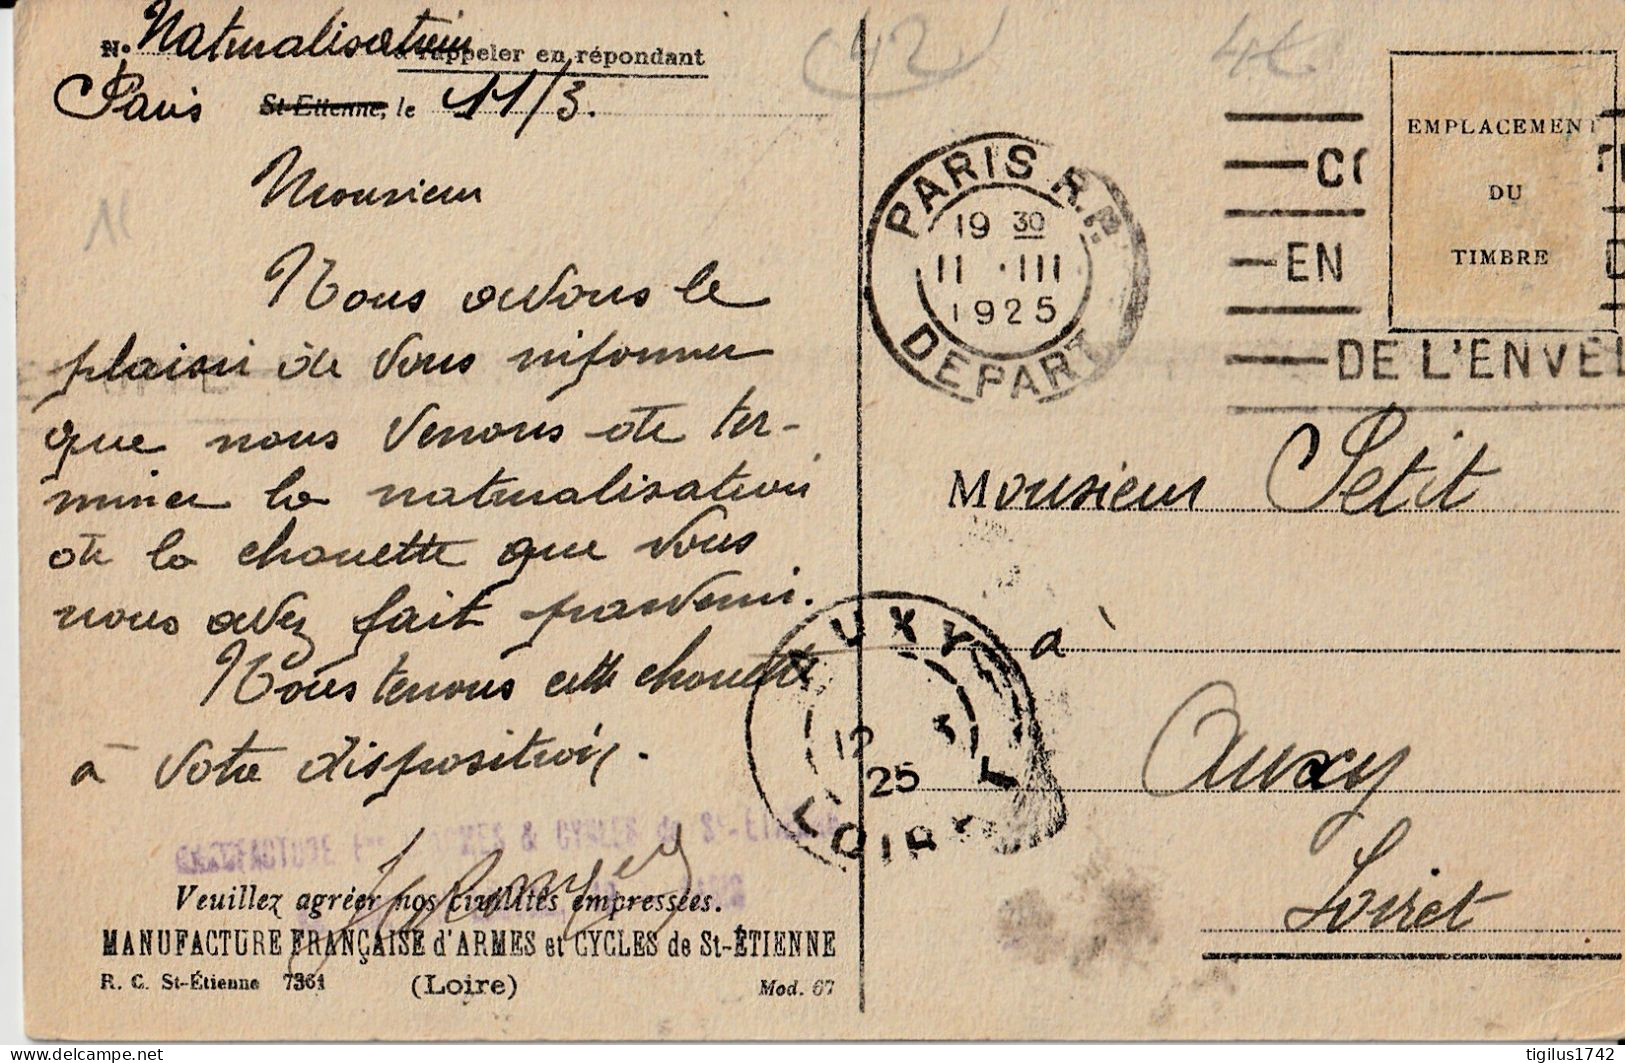 N° Naturalisation à rappeler en répondant
Paris St-Etienne, le 11/3.
Monsieur
Nous avons le
plaisir de vous informer
que nous venons de ter-
miner la naturalisation
de la chouette que vous
nous avez fait parvenir.
Nous tenons cette chouette
à votre disposition.
MANUFACTURE Fse D'ARMES & CYCLES de St-ETIENNE
Veuillez agréer nos civilités empressées.
MANUFACTURE FRANÇAISE d'ARMES et CYCLES de St-ÉTIENNE
R. C. St-Étienne 7361 (Loire) Mod. 67
(42)
PARIS R.P.
19 30
11 · III
1925
DEPART
EN
DE L'ENVEL
EMPLACEMENT
DU
TIMBRE
Monsieur Petit
à
Auxy
Loiret
AUXY
12 3
25
LOIRET
tigilus1742